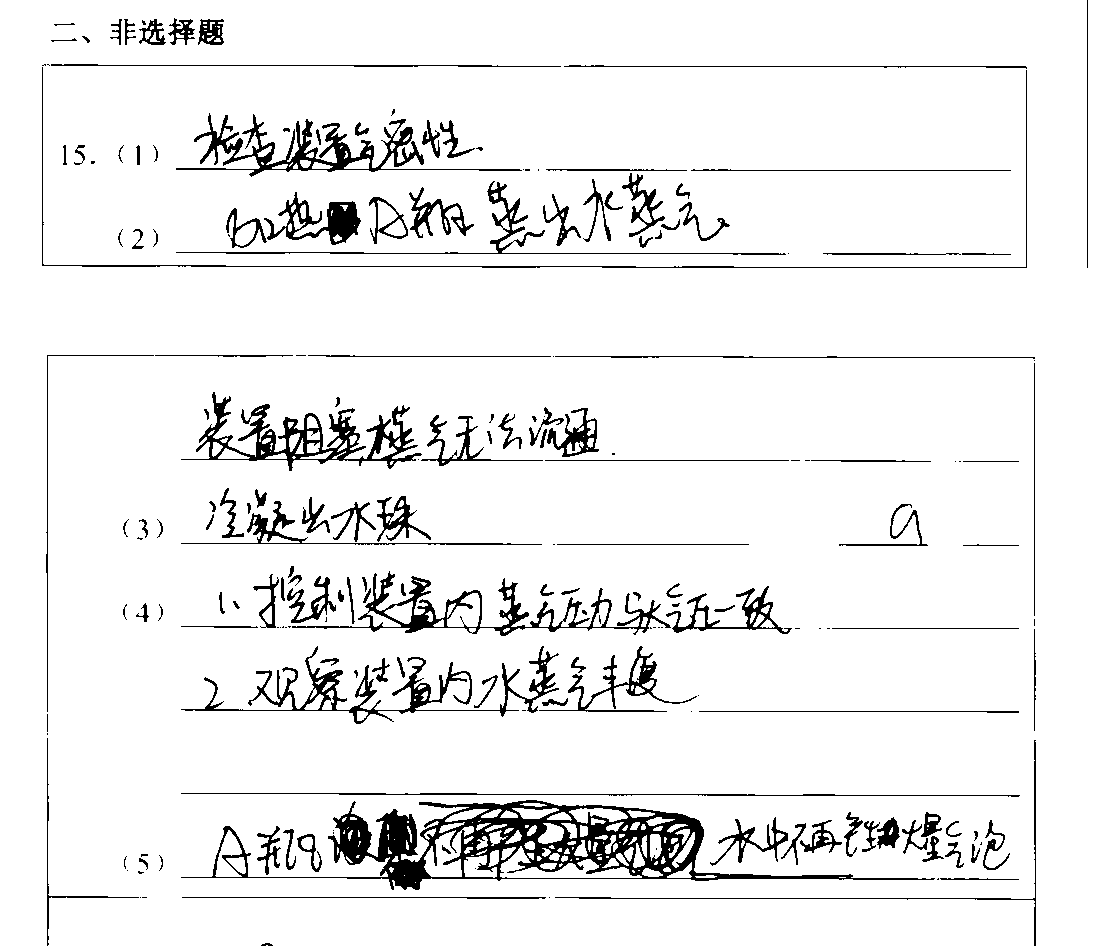 二、非选择题
15.（1）检查装置气密性.
（2）加热A瓶 蒸出水蒸气.
装置阻塞,蒸气无法流通.
（3）冷凝出水珠 a
（4）1、控制装置内蒸气压力与大气压一致
2 观察装置内水蒸气丰度
（5）A瓶 水中不再产生爆气泡